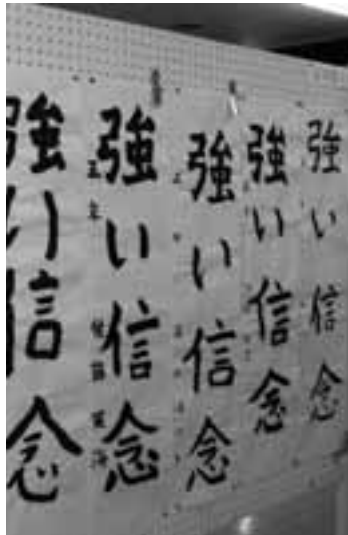 強い信念
強い信念
強い信念
強い信念
強い信念